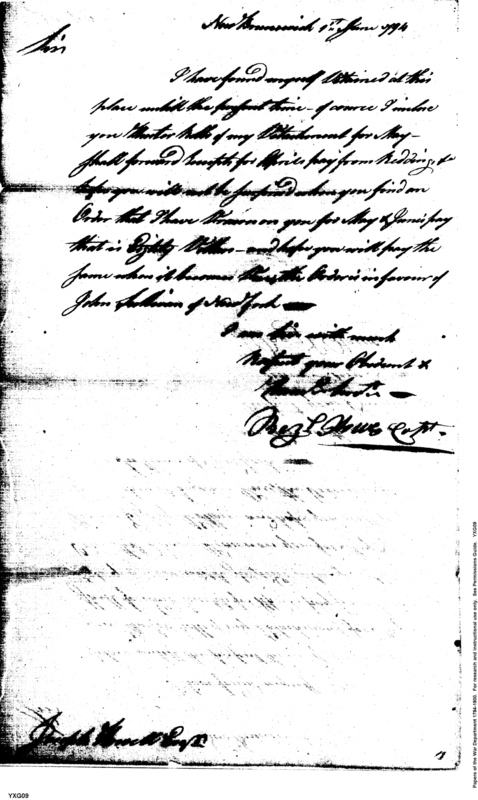 New Brunswick 1st June 1794
Sir
I have found myself detained at this
place untill the present time - of course I inclose
you Muster Rolls of my Detachment for May -
shall forward receipts for Aprils pay from Reading, &c
hope you will not be surprised when you find an
Order that I have drawn on you for May & June pay
that is Eighty Dollars - and hope you will pay the
same when it becomes due, the Order is in favour of
John Sullivan of New York
I am Sir with much
Respect your Obedient &
Humble Servt
Bezl Howe Capt.
Joseph Howell Esqr.
Papers of the War Department 1784-1800. For research and instructional use only. See Permissions Guide. YXG09
YXG09